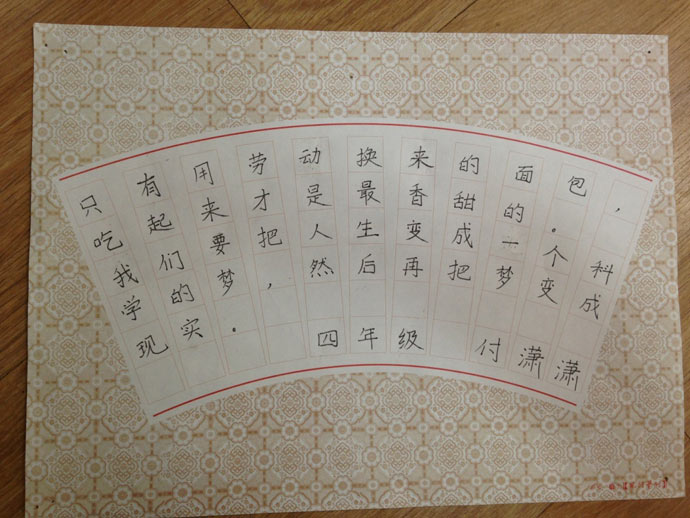 只有用劳动换来的面包，
吃起来才是最香甜的。
我们要把人生变成一个科
学的梦，然后再把梦变成
现实。 四年级 付潇潇